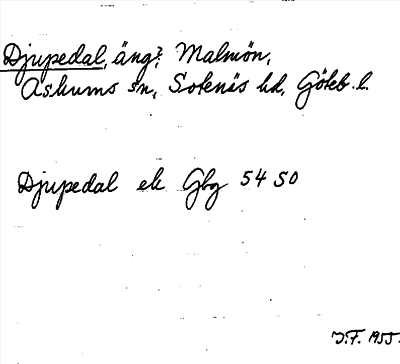 Djupedal, äng?, Malmön,
Askums sn, Sotenäs hd, Göteb. l.
Djupedal ek Gbg 5450
J.F. 1955.